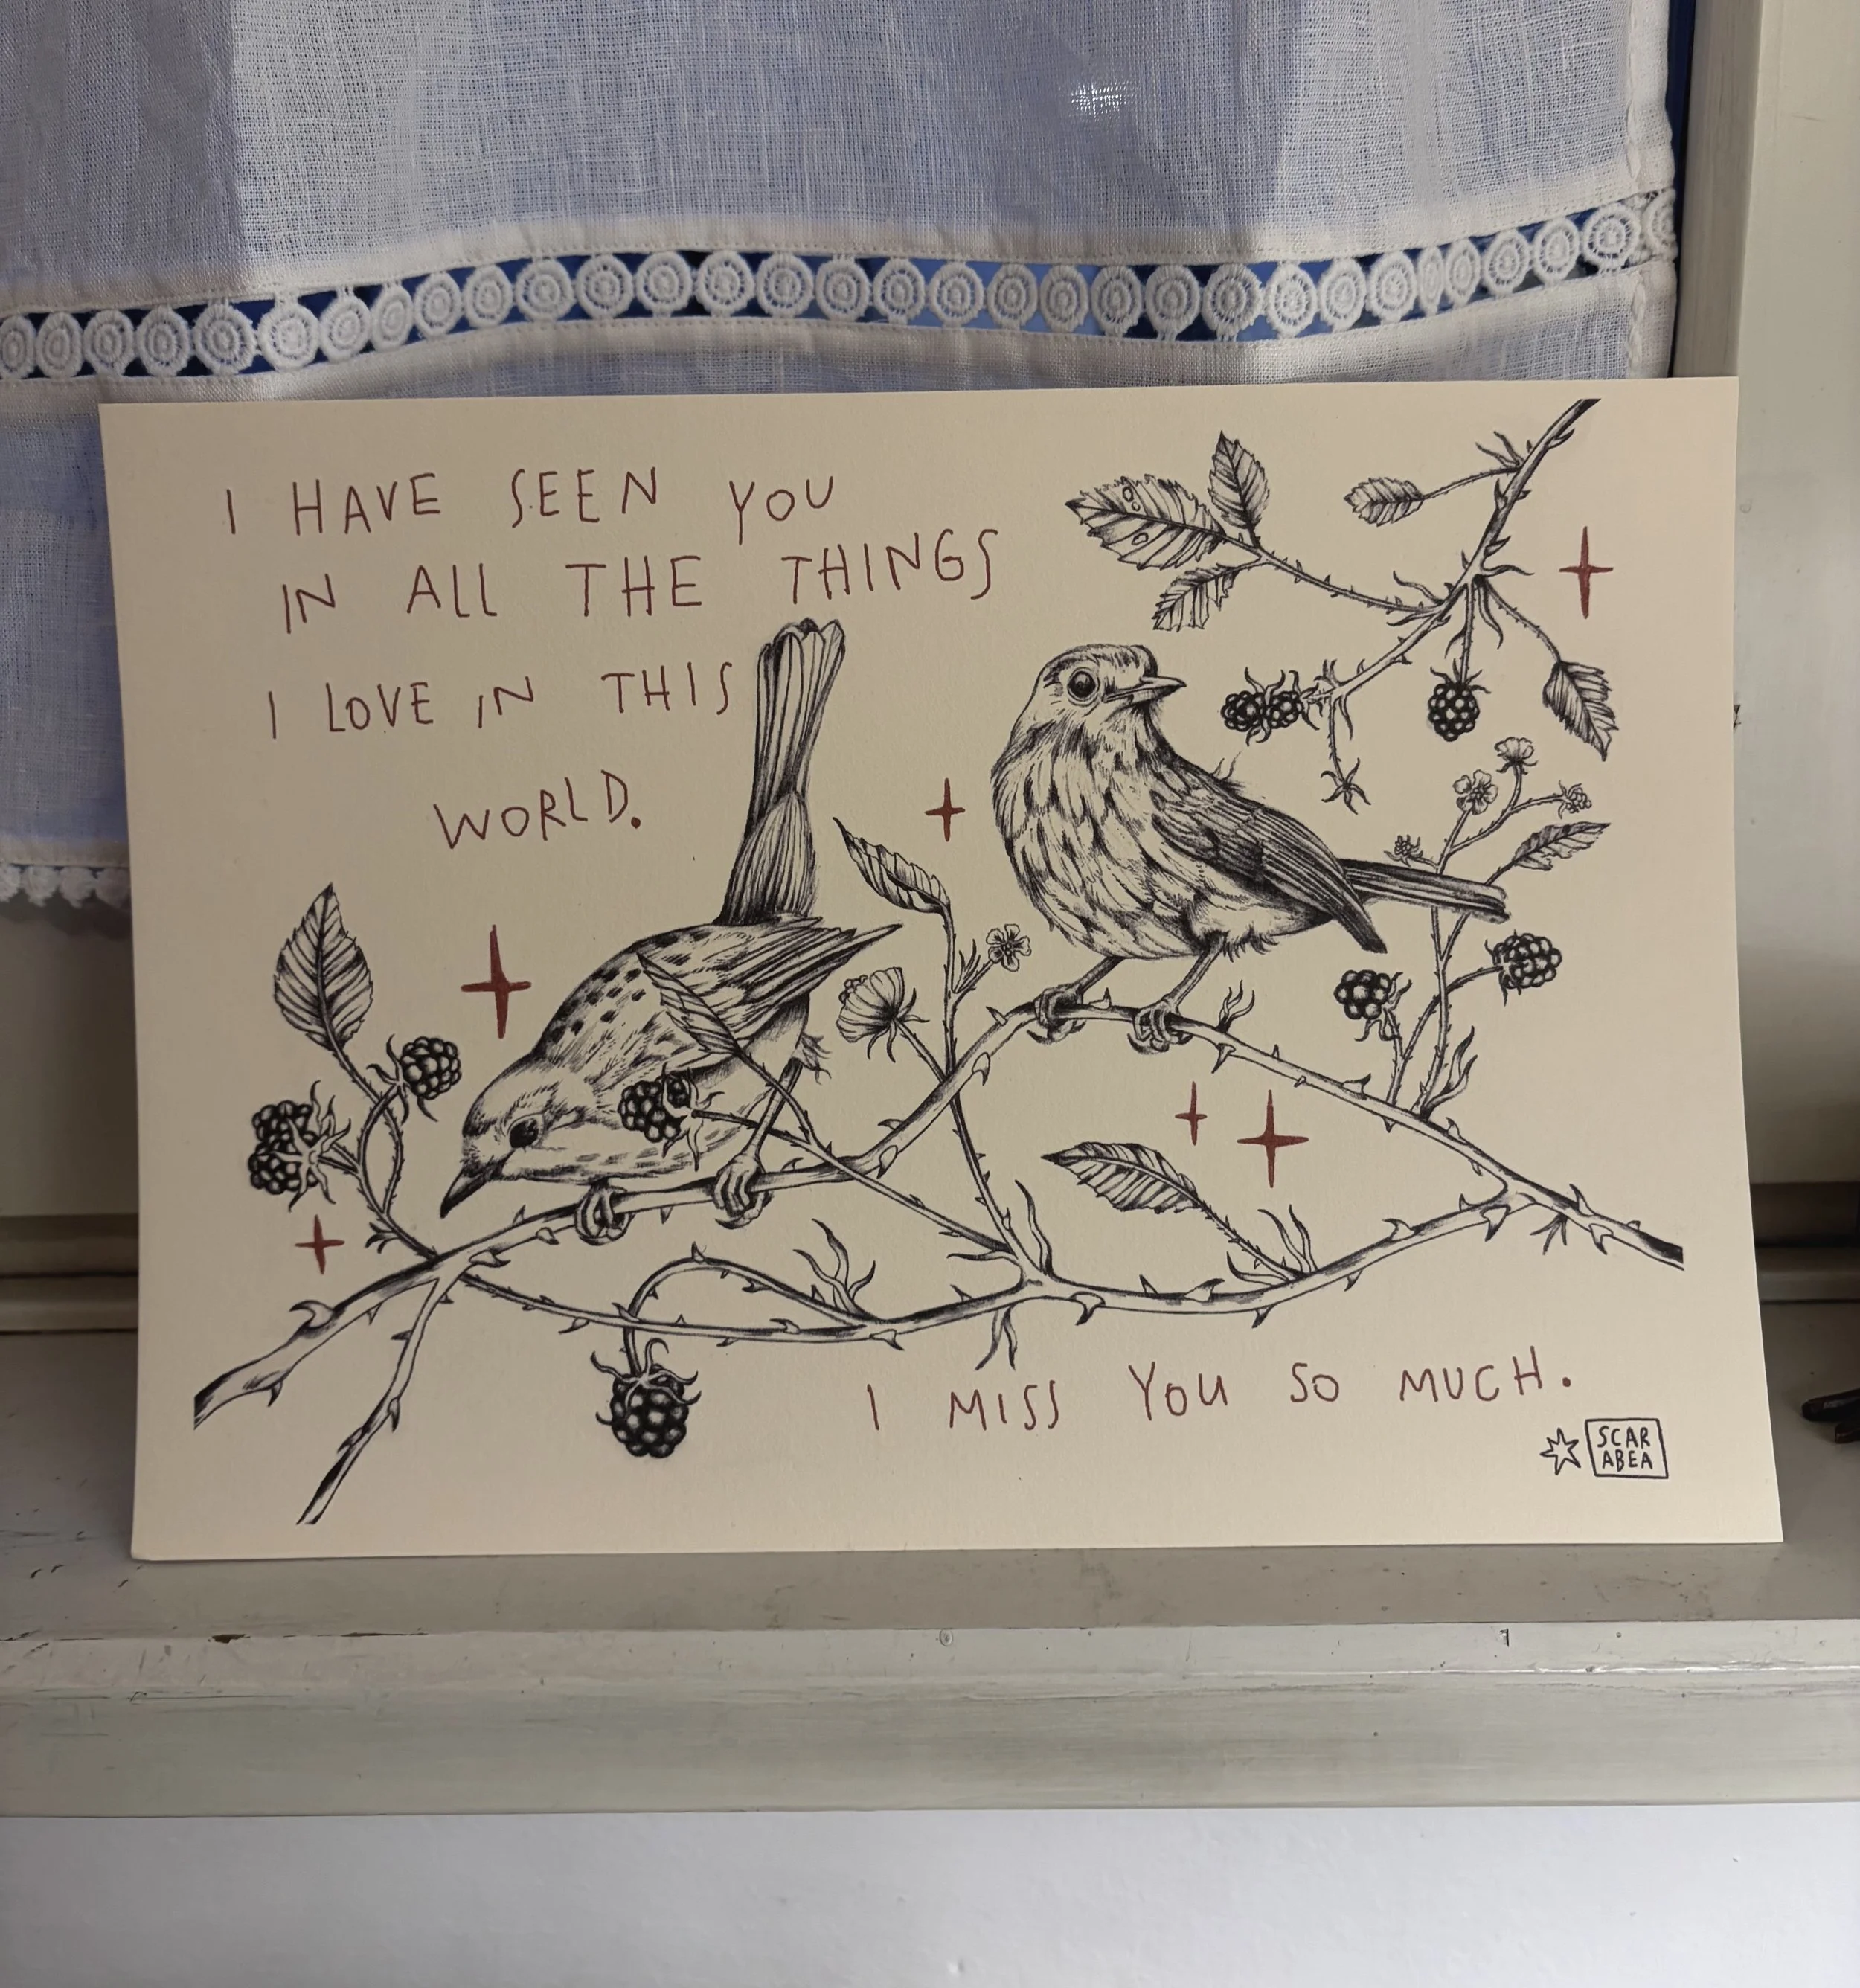 I HAVE SEEN YOU
IN ALL THE THINGS
I LOVE IN THIS
WORLD.
I MISS YOU SO MUCH.
SCAR
ABEA